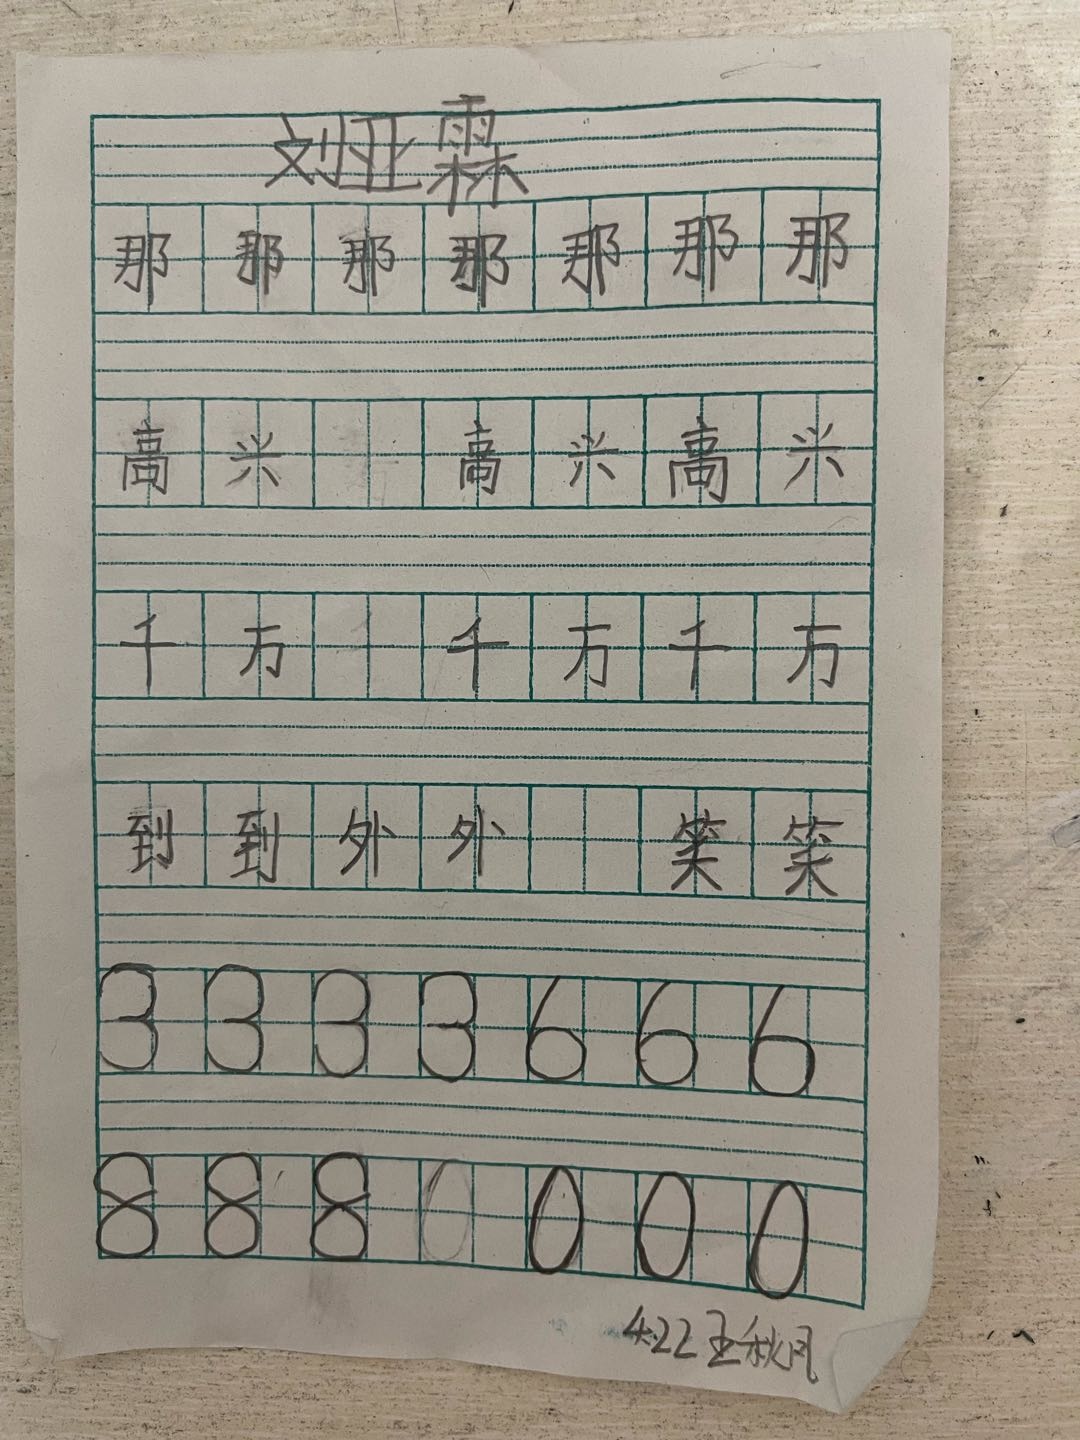 刘亚霖
那那那那那那那
高兴 高兴高兴
千万 千万千万
到到外外 笑笑
3333666
8880000
4.22王秋风